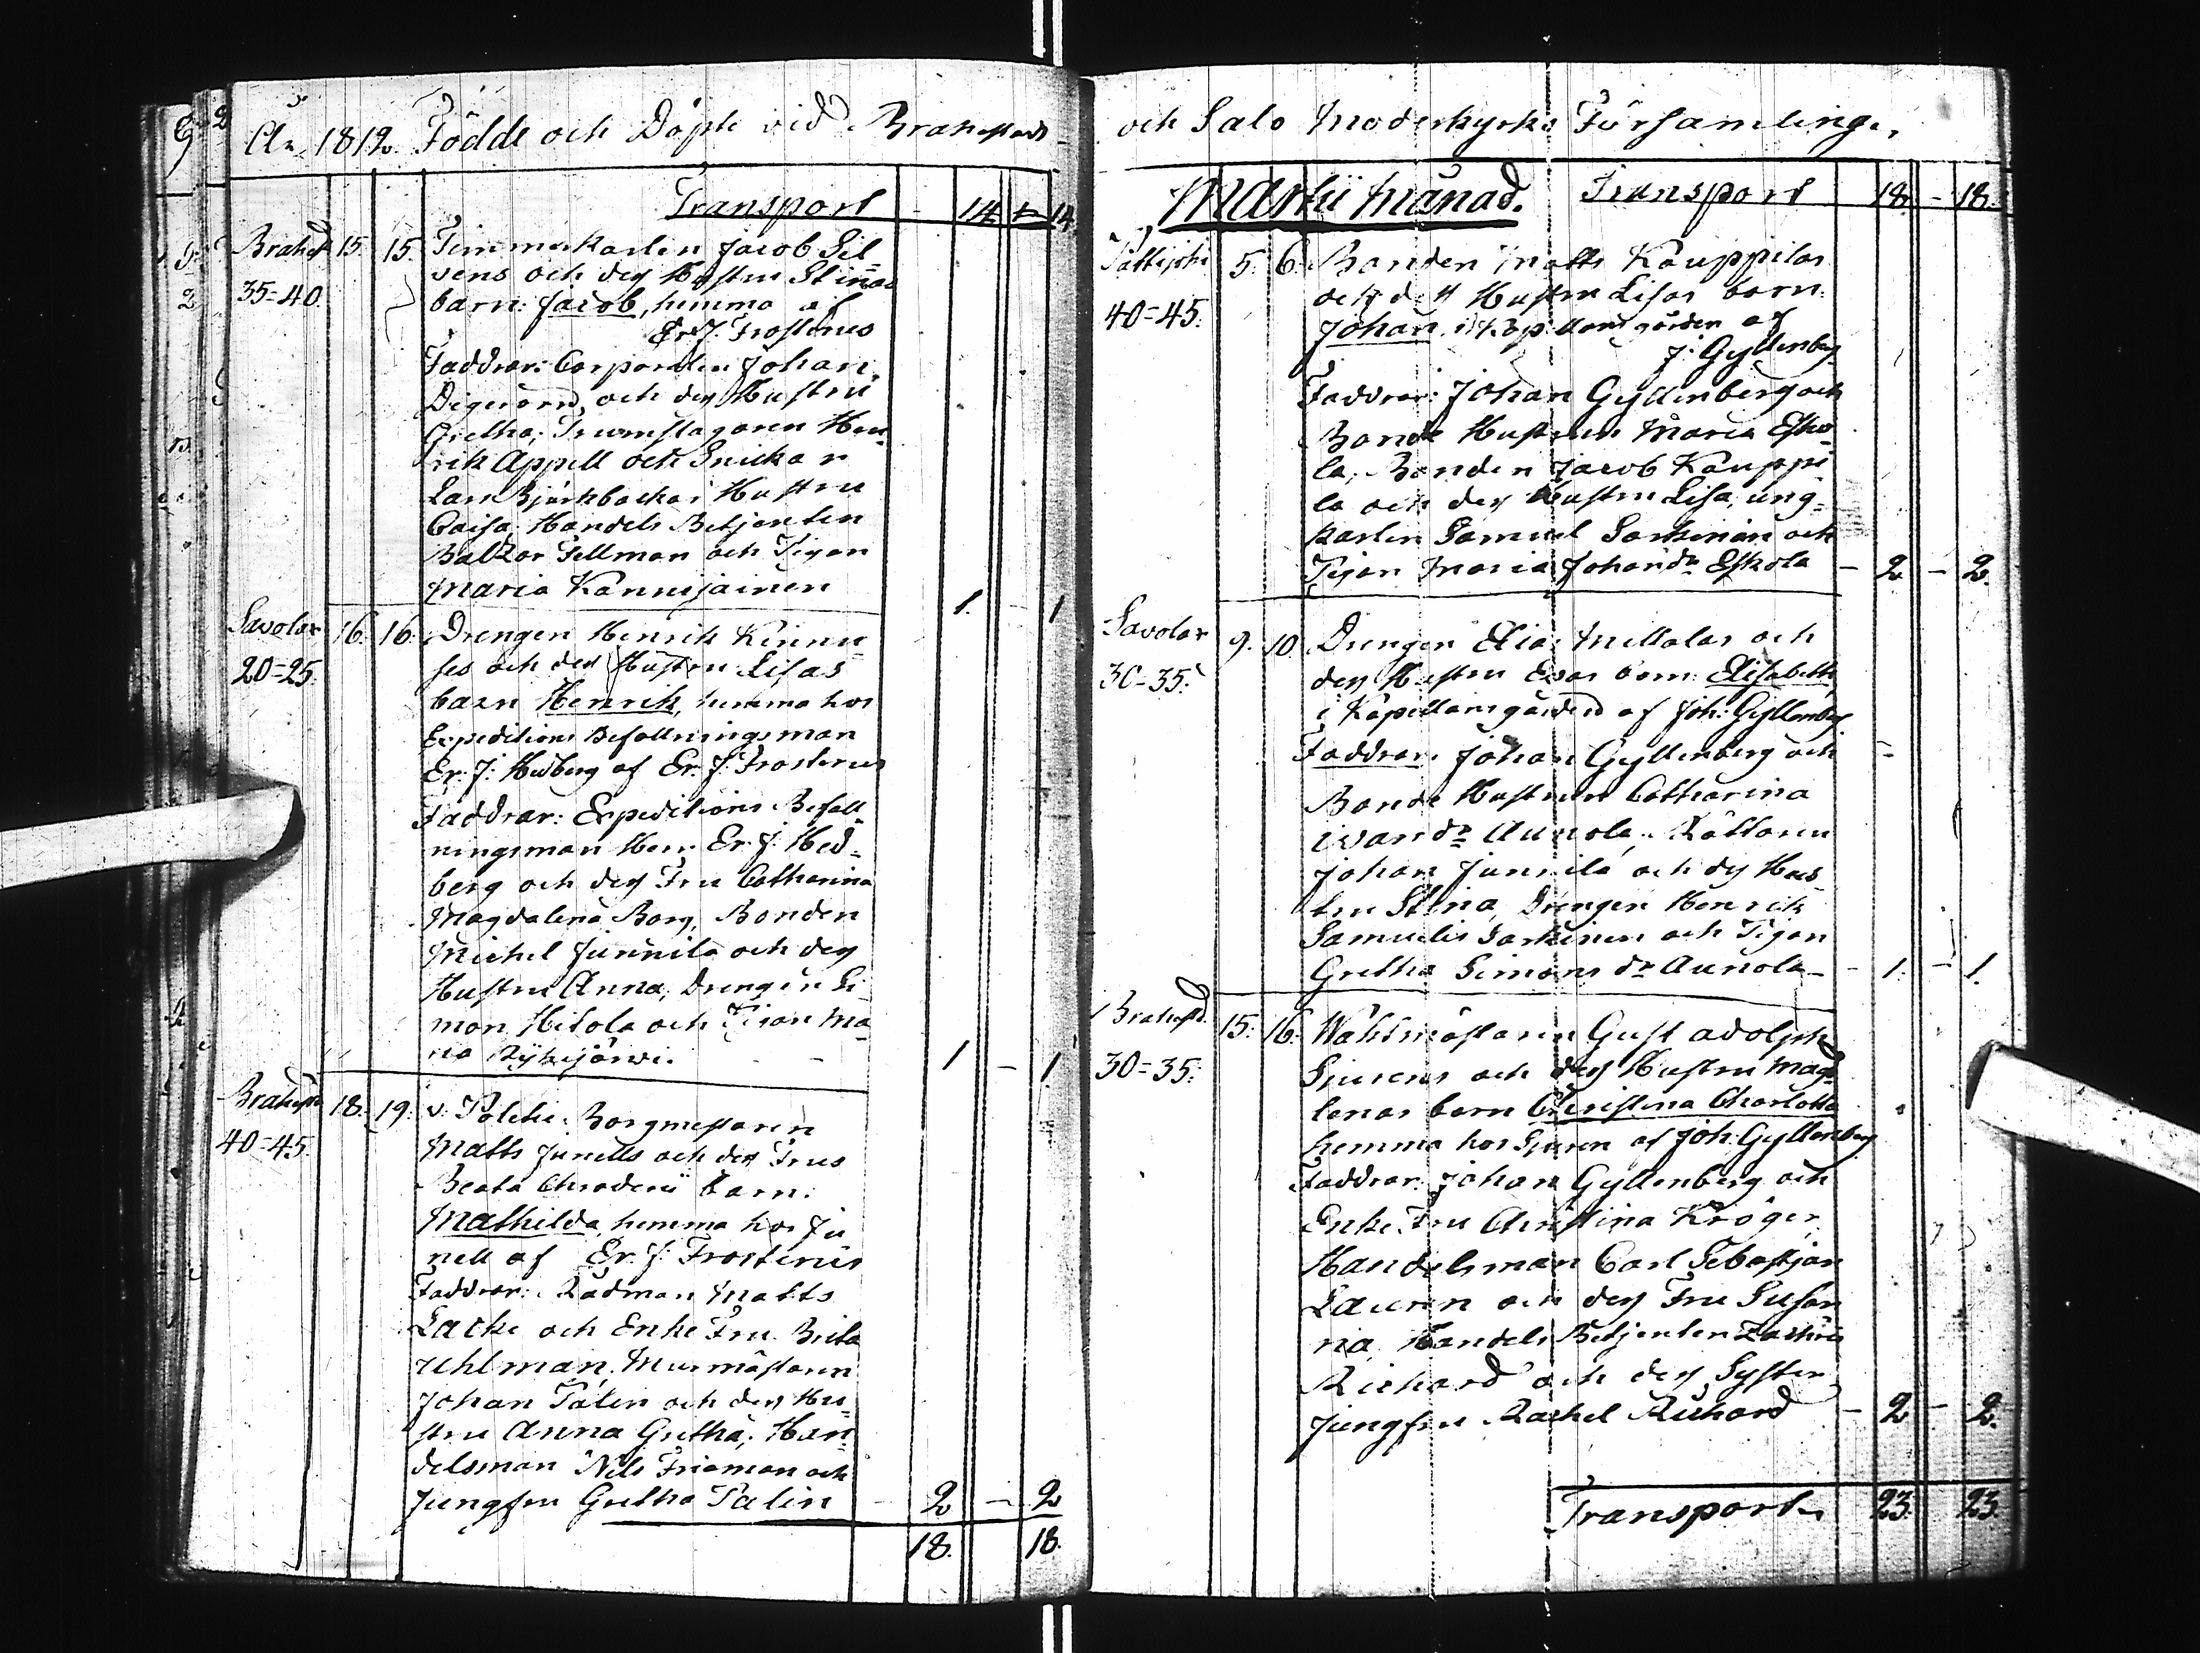 An. 1812. Födde och Döpte vid Brahestads
Transport - 14 - 14
Brahest. 15. 15. Timmerkarlen Jacob Sil-
35=40. vens och des Hustru Stinas
barn: Jacob, hemma af
Er. J. Frosterus
Faddrar: Corporalen Johan
och des Hustru
Gretha; Trumslagaren Hen-
rik Appell och Snickar
Lars Björkbackas Hustru
Caisa, Handels Betjenten
Baltzar Fellman och Pigan
Maria
1. - 1
Savolax 16. 16. Drengen Henrik Kinnu-
20=25. ses och des Hustru Lisas
barn Henrik, hemma hos
Expeditions Befallningsman
Er: J: Hedberg af Er. J: Frosterus
Faddrar: Expeditions Befall-
ningsman Herr Er. J. Hed-
berg och des Fru Catharina
Magdalena Borg, Bonden
Michel Junnila och des
Hustru Anna, Drengen Si-
mon Hitola och Pigan Ma-
ria - 1 - 1
Brahest. 18. 19. v. Politie Borgmestaren
40=45. Matts Junells och des Frus
Beata Chroderii barn:
Mathilda, hemma hos Ju
nell af Er. J: Frosterus
Faddrar: Rådman Matts
Lacke och Enke Fru Brita
Uhlman, Murmästaren
Johan Palin och des Hu-
stru Anna Gretha; Han-
delsman Nils Frieman och
Jungfru Gretha Palin - 2 - 2
18. 18.
och Salo Moderkyrko Församlingar
Martii Månad. Transport 18. - 18.
Pattijoki 5. 6. Bonden Matts Kauppilas
och des Hustru Lisas barn:
40=45. Johan, i Kapellansgården af
J: Gyllenberg
Faddrar: Johan Gyllenberg och
Bonde Hustrun Maria Esko-
la, Bonden Jacob Kauppi
la och des Hustru Lisa, ung-
karlen Samuel Sarkinen och
Pigan Maria Johansdr Eskola - 2 - 2.
Savolax 9. 10. Drengen Elias Millalas och
30-35. des Hustru Evas barn: Elisabeth,
i Kapellansgården af Joh: Gyllenberg
Faddrar: Johan Gyllenberg och
Bonde Hustrun Catharina
Ivarsdr Aunola, Rättaren
Johan Junnila och des Hus
tru Stina, Drengen Henrik
Samuelis Sarkinen och Pigan
Gretha Simonsdr Aunola - 1. - 1.
Brahest. 15. 16. Waktmästaren Gust Adolph
30=35. Sjurens och des Hustru Mag-
lenas barn Christina Charlotta
hemma hos Sjuren af Joh: Gyllenberg
Faddrar: Johan Gyllenberg och
Enke Fru Christina Kröger,
Handelsman Carl Sebastjan
Lauren och des Fru Susan
na, Handels Betjenten Zachris
Richard och des Syster
Jungfru Rachel Richard - 2 - 2.
Transport 23. 23.